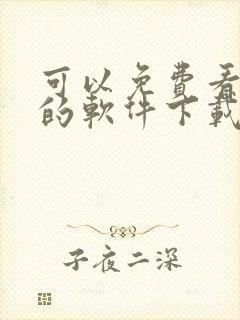 可以免費看
的軟件下載
子夜二深